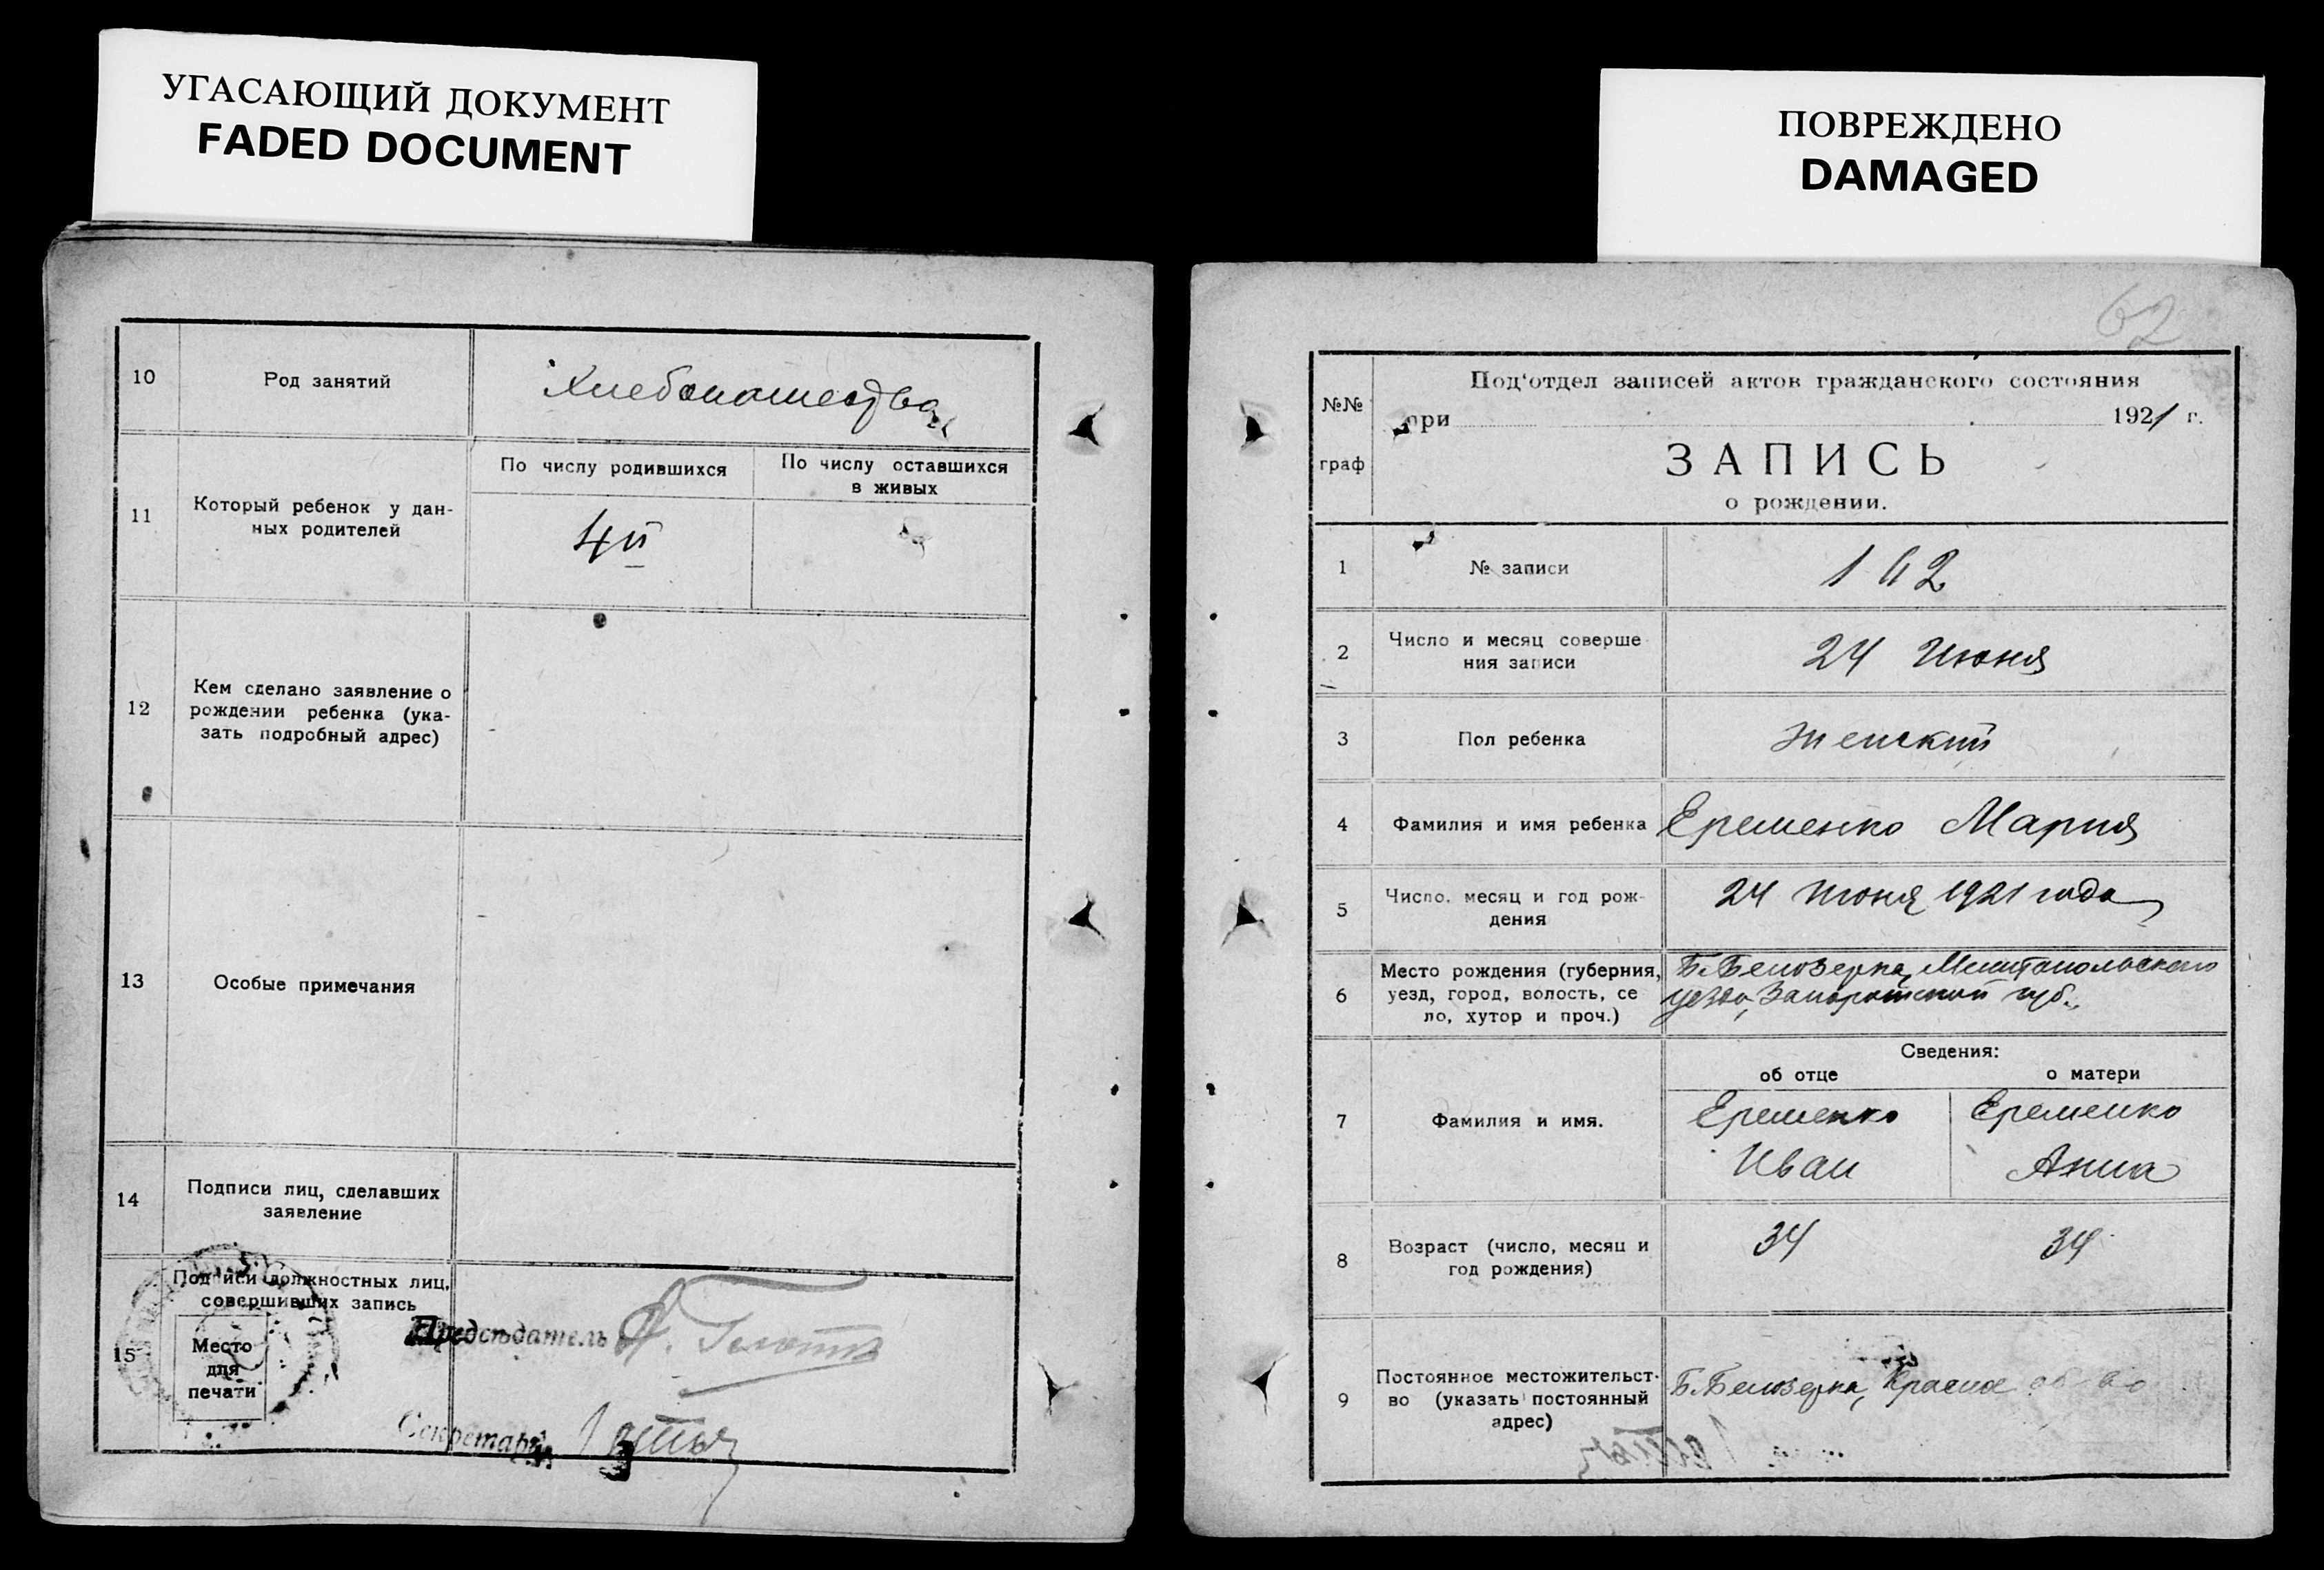 УГАСАЮЩИЙ ДОКУМЕНТ
FADED DOCUMENT
10
Род занятий
Хлебопашество
11
Который ребенок у дан-
ных родителей
По числу родившихся
По числу оставшихся
в живых
4й
12
Кем сделано заявление о
рождении ребенка (ука-
зать подробный адрес)
13
Особые примечания
14
Подписи лиц, сделавших
заявление
15
Подписи должностных лиц,
совершивших запись
Место
для
печати
Председатель
Секретарь
ПОВРЕЖДЕНО
DAMAGED
62
№№
граф
Под'отдел записей актов гражданского состояния
при 1921 г.
ЗАПИСЬ
о рождении.
1
№ записи
162
2
Число и месяц соверше
ния записи
24 Июня
3
Пол ребенка
женский
4
Фамилия и имя ребенка
Еременко Мария
5
Число, месяц и год рож-
дения
24 Июня 1921 года
6
Место рождения (губерния,
уезд, город, волость, се
ло, хутор и проч.)
Б. Белозерка, Мелитопольского
уезда, Запорожской губ.
Сведения:
об отце
о матери
7
Фамилия и имя.
Еременко
Иван
Еременко
Анна
8
Возраст (число, месяц и
год рождения)
34
34
9
Постоянное местожительст-
во (указать постоянный
адрес)
Б. Белозерка, Красное